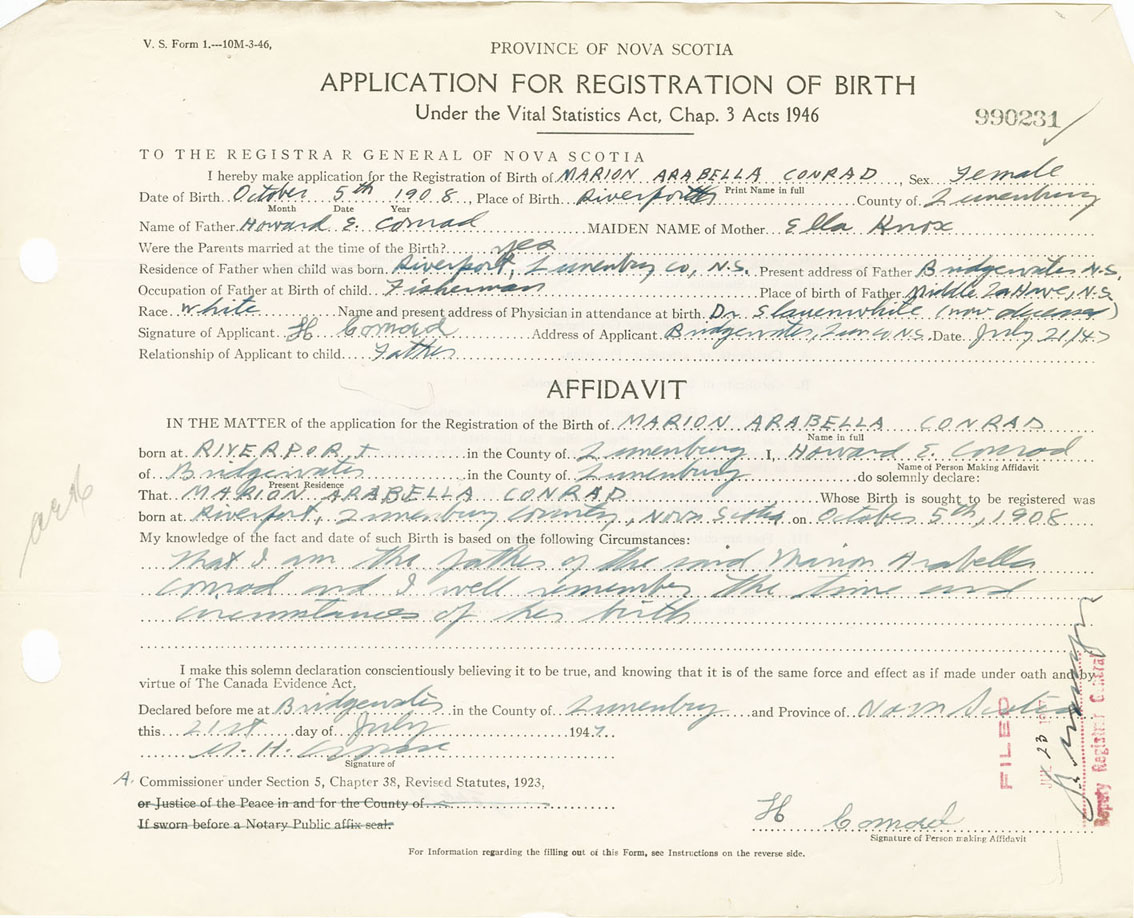 V. S. Form 1.---10M-3-46,
PROVINCE OF NOVA SCOTIA
APPLICATION FOR REGISTRATION OF BIRTH
Under the Vital Statistics Act, Chap. 3 Acts 1946
990231
TO THE REGISTRAR GENERAL OF NOVA SCOTIA
I hereby make application for the Registration of Birth of MARION ARABELLA CONRAD, Sex Female
Print Name in full
Date of Birth October 5th 1908, Place of Birth Riverport County of Lunenburg
Month Date Year
Name of Father Howard E. Conrad MAIDEN NAME of Mother Ella Knox
Were the Parents married at the time of the Birth? yes
Residence of Father when child was born Riverport, Lunenburg Co, N.S. Present address of Father Bridgewater N.S.
Occupation of Father at Birth of child Fisherman Place of birth of Father Middle LaHave, N.S.
Race White Name and present address of Physician in attendance at birth Dr. Slauenwhite (now deceased)
Signature of Applicant H Conrad Address of Applicant Bridgewater, Lun Co N.S. Date July 21/47
Relationship of Applicant to child Father
AFFIDAVIT
IN THE MATTER of the application for the Registration of Birth of MARION ARABELLA CONRAD
Name in full
born at RIVERPORT in the County of Lunenburg I, Howard E. Conrad
Name of Person Making Affidavit
of Bridgewater in the County of Lunenburg do solemnly declare:
Present Residence
That MARION ARABELLA CONRAD Whose Birth is sought to be registered was
born at Riverport, Lunenburg County, Nova Scotia on October 5th, 1908
My knowledge of the fact and date of such Birth is based on the following Circumstances:
That I am the father of the said Marion Arabella
Conrad and I well remember the time and
circumstances of her birth
I make this solemn declaration conscientiously believing it to be true, and knowing that it is of the same force and effect as if made under oath and by
virtue of The Canada Evidence Act.
Declared before me at Bridgewater in the County of Lunenburg and Province of Nova Scotia
this 21st day of July 1947.
Signature of
A Commissioner under Section 5, Chapter 38, Revised Statutes, 1923,
or Justice of the Peace in and for the County of
If sworn before a Notary Public affix seal.
H Conrad
Signature of Person making Affidavit
For Information regarding the filling out of this Form, see Instructions on the reverse side.
FILED
Deputy Registrar General